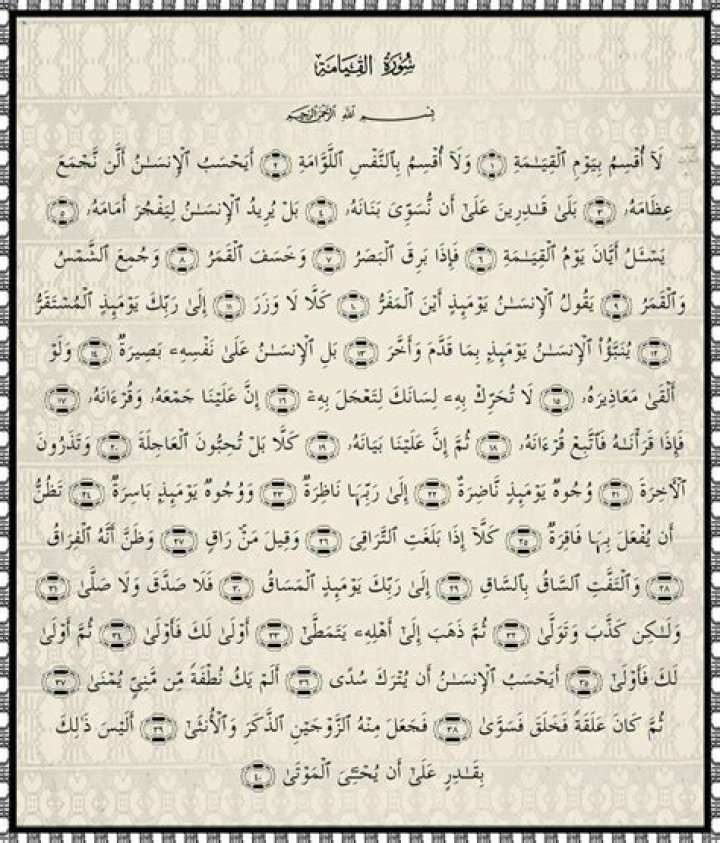 سُورَةُ القِيَامَة
بِسْمِ اللَّهِ الرَّحْمَٰنِ الرَّحِيمِ
لَآ أُقْسِمُ بِيَوْمِ ٱلْقِيَـٰمَةِ ﴿١﴾ وَلَآ أُقْسِمُ بِٱلنَّفْسِ ٱللَّوَّامَةِ ﴿٢﴾ أَيَحْسَبُ ٱلْإِنسَـٰنُ أَلَّن نَّجْمَعَ
عِظَامَهُۥ ﴿٣﴾ بَلَىٰ قَـٰدِرِينَ عَلَىٰٓ أَن نُّسَوِّىَ بَنَانَهُۥ ﴿٤﴾ بَلْ يُرِيدُ ٱلْإِنسَـٰنُ لِيَفْجُرَ أَمَامَهُۥ ﴿٥﴾
يَسْـَٔلُ أَيَّانَ يَوْمُ ٱلْقِيَـٰمَةِ ﴿٦﴾ فَإِذَا بَرِقَ ٱلْبَصَرُ ﴿٧﴾ وَخَسَفَ ٱلْقَمَرُ ﴿٨﴾ وَجُمِعَ ٱلشَّمْسُ
وَٱلْقَمَرُ ﴿٩﴾ يَقُولُ ٱلْإِنسَـٰنُ يَوْمَئِذٍ أَيْنَ ٱلْمَفَرُّ ﴿١٠﴾ كَلَّا لَا وَزَرَ ﴿١١﴾ إِلَىٰ رَبِّكَ يَوْمَئِذٍ ٱلْمُسْتَقَرُّ
﴿١٢﴾ يُنَبَّؤُا۟ ٱلْإِنسَـٰنُ يَوْمَئِذٍۭ بِمَا قَدَّمَ وَأَخَّرَ ﴿١٣﴾ بَلِ ٱلْإِنسَـٰنُ عَلَىٰ نَفْسِهِۦ بَصِيرَةٌ ﴿١٤﴾ وَلَوْ
أَلْقَىٰ مَعَاذِيرَهُۥ ﴿١٥﴾ لَا تُحَرِّكْ بِهِۦ لِسَانَكَ لِتَعْجَلَ بِهِۦٓ ﴿١٦﴾ إِنَّ عَلَيْنَا جَمْعَهُۥ وَقُرْءَانَهُۥ ﴿١٧﴾
فَإِذَا قَرَأْنَـٰهُ فَٱتَّبِعْ قُرْءَانَهُۥ ﴿١٨﴾ ثُمَّ إِنَّ عَلَيْنَا بَيَانَهُۥ ﴿١٩﴾ كَلَّا بَلْ تُحِبُّونَ ٱلْعَاجِلَةَ ﴿٢٠﴾ وَتَذَرُونَ
ٱلْـَٔاخِرَةَ ﴿٢١﴾ وُجُوهٌ يَوْمَئِذٍ نَّاضِرَةٌ ﴿٢٢﴾ إِلَىٰ رَبِّهَا نَاظِرَةٌ ﴿٢٣﴾ وَوُجُوهٌ يَوْمَئِذٍۭ بَاسِرَةٌ ﴿٢٤﴾ تَظُنُّ
أَن يُفْعَلَ بِهَا فَاقِرَةٌ ﴿٢٥﴾ كَلَّآ إِذَا بَلَغَتِ ٱلتَّرَاقِىَ ﴿٢٦﴾ وَقِيلَ مَنْ ۜ رَاقٍ ﴿٢٧﴾ وَظَنَّ أَنَّهُ ٱلْفِرَاقُ
﴿٢٨﴾ وَٱلْتَفَّتِ ٱلسَّاقُ بِٱلسَّاقِ ﴿٢٩﴾ إِلَىٰ رَبِّكَ يَوْمَئِذٍ ٱلْمَسَاقُ ﴿٣٠﴾ فَلَا صَدَّقَ وَلَا صَلَّىٰ ﴿٣١﴾
وَلَـٰكِن كَذَّبَ وَتَوَلَّىٰ ﴿٣٢﴾ ثُمَّ ذَهَبَ إِلَىٰٓ أَهْلِهِۦ يَتَمَطَّىٰٓ ﴿٣٣﴾ أَوْلَىٰ لَكَ فَأَوْلَىٰ ﴿٣٤﴾ ثُمَّ أَوْلَىٰ
لَكَ فَأَوْلَىٰٓ ﴿٣٥﴾ أَيَحْسَبُ ٱلْإِنسَـٰنُ أَن يُتْرَكَ سُدًى ﴿٣٦﴾ أَلَمْ يَكُ نُطْفَةً مِّن مَّنِىٍّ يُمْنَىٰ ﴿٣٧﴾
ثُمَّ كَانَ عَلَقَةً فَخَلَقَ فَسَوَّىٰ ﴿٣٨﴾ فَجَعَلَ مِنْهُ ٱلزَّوْجَيْنِ ٱلذَّكَرَ وَٱلْأُنثَىٰٓ ﴿٣٩﴾ أَلَيْسَ ذَٰلِكَ
بِقَـٰدِرٍ عَلَىٰٓ أَن يُحْـِۧىَ ٱلْمَوْتَىٰ ﴿٤٠﴾